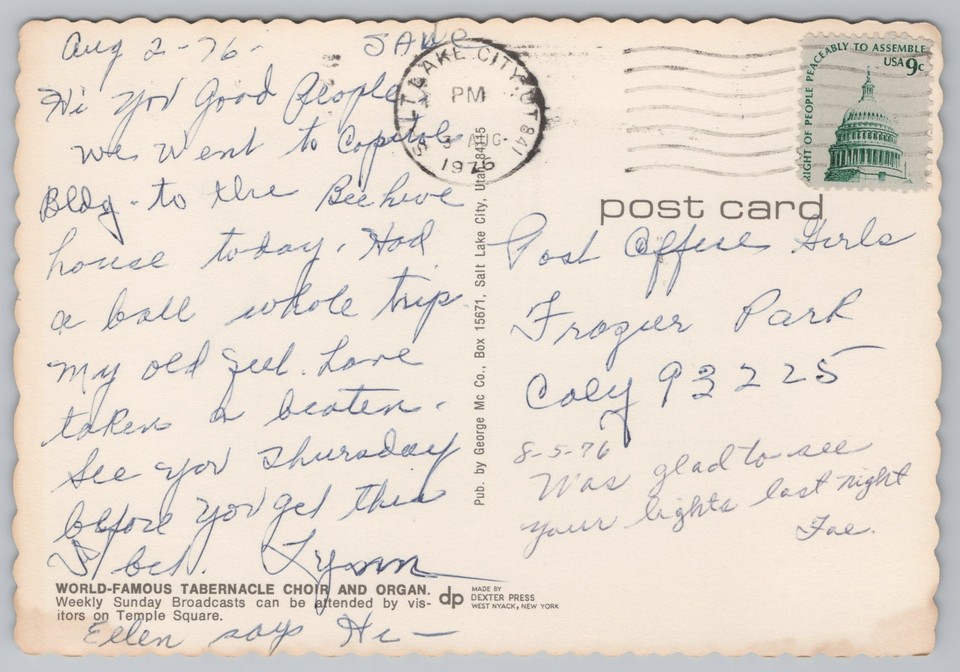 Aug 2-76-
SAVE
Hi you Good People
We went to Capitol
Bldg. to the Beehive
house today. Had
a ball whole trip
My old feet have
taken a beaten.
See you Thursday
before you get this
I bet. Lynn
Ellen says Hi —
WORLD-FAMOUS TABERNACLE CHOIR AND ORGAN.
Weekly Sunday Broadcasts can be attended by vis-
itors on Temple Square.
dp
MADE BY
DEXTER PRESS
WEST NYACK, NEW YORK
Pub. by George Mc Co., Box 15671, Salt Lake City, Utah 84115
SALT LAKE CITY, UT 841
PM
3 AUG
1976
RIGHT OF PEOPLE PEACEABLY TO ASSEMBLE
USA 9c
post card
Post Office Girls
Frazier Park
Caly 93225
8-5-76
Was glad to see
your lights last night
Fae.